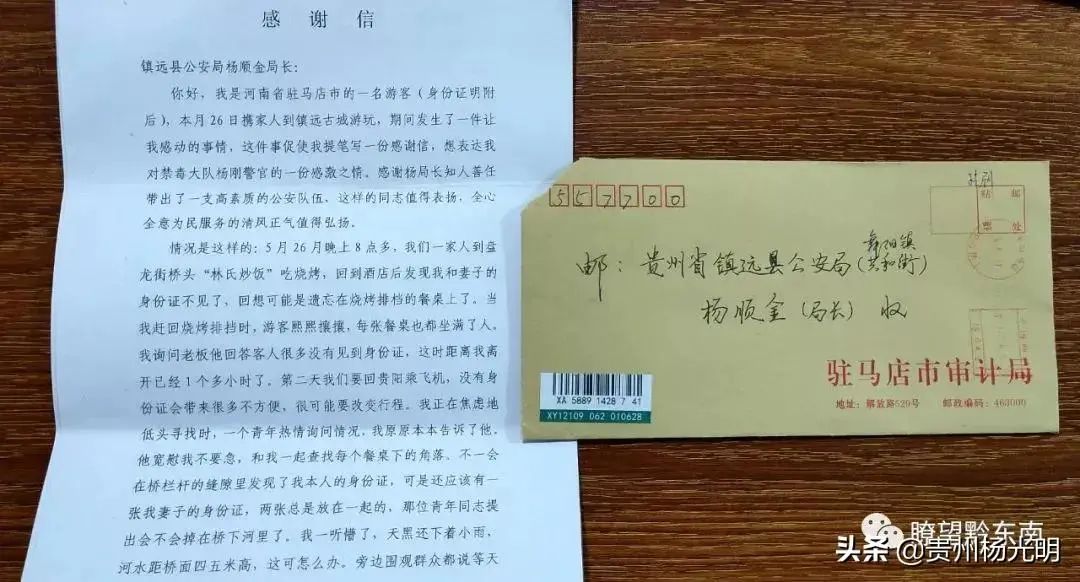 感谢信
镇远县公安局杨顺金局长：
你好，我是河南省驻马店市的一名游客（身份证明附
后），本月26日携家人到镇远古城游玩，期间发生了一件让
我感动的事情，这件事促使我提笔写一份感谢信，想表达我
对禁毒大队杨刚警官的一份感激之情。感谢杨局长知人善任
带出了一支高素质的公安队伍，这样的同志值得表扬，全心
全意为民服务的清风正气值得弘扬。
情况是这样的：5月26月晚上8点多，我们一家人到盘
龙街桥头“林氏炒饭”吃烧烤，回到酒店后发现我和妻子的
身份证不见了，回想可能是遗忘在烧烤排档的餐桌上了。当
我赶回烧烤排挡时，游客熙熙攘攘，每张餐桌也都坐满了人。
我询问老板他回答客人很多没有见到身份证，这时距离我离
开已经1个多小时了。第二天我们要回贵阳乘飞机，没有身
份证会带来很多不方便，很可能要改变行程。我正在焦虑地
低头寻找时，一个青年热情询问情况，我原原本本告诉了他。
他宽慰我不要急，和我一起查找每个餐桌下的角落。不一会
在桥栏杆的缝隙里发现了我本人的身份证，可是还应该有一
张我妻子的身份证，两张总是放在一起的，那位青年同志提
出会不会掉在桥下河里了。我一听懵了，天黑还下着小雨，
河水距桥面四五米高，这可怎么办。旁边围观群众都说等天
557700
挂刷
贴邮
票处
邮：贵州省镇远县公安局（舞阳镇
共和街）
杨顺金（局长）收
驻马店市审计局
地址：解放路529号 邮政编码：463000
XA 5889 1428 7 41
XY12109 062 010628
瞭望黔东南
头条@贵州杨光明